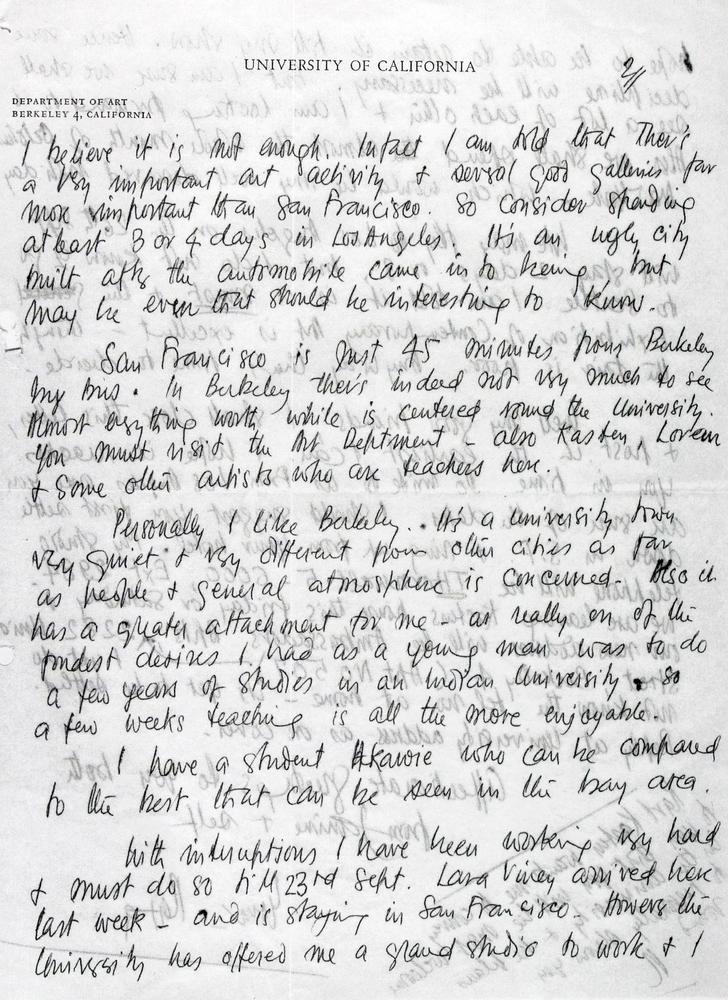 UNIVERSITY OF CALIFORNIA
2//
DEPARTMENT OF ART
BERKELEY 4, CALIFORNIA
I believe it is not enough. Infact I am told that there's
a very important art activity & several good galleries far
more important than San Francisco. So consider spending
at least 3 or 4 days in Los Angeles. It's an ugly city
built after the automobile came in to being, but
may be even that should be interesting to know.
San Francisco is just 45 minutes from Berkeley
by bus. In Berkeley there's indeed not very much to see
Almost everything worth while is centered round the University.
You must visit the Art Deptment - also Kasten, Loren
& some other artists who are teachers here.
Personally I like Berkeley. It's a University town
very quiet & very different from other cities as far
as people & general atmosphere is concerned- Also it
has a greater attachment for me - as really on of the
fondest desires I had as a young man was to do
a few years of studies in an Indian University. so
a few weeks teaching is all the more enjoyable.
I have a student who can be compared
to the best that can be seen in the bay area.
With interuptions I have been working very hard
& must do so till 23rd Sept. Lara Viney arrived here
last week - and is staying in San Francisco. However the
University has offered me a grand studio to work & I